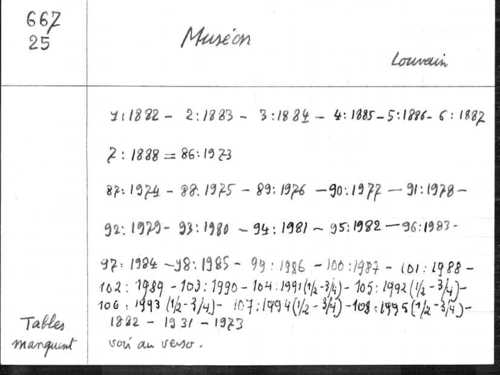 667
25
Muséon
Louvain
1:1882 - 2:1883 - 3:1884 - 4:1885 - 5:1886 - 6:1887
7:1888 = 86:1973
87:1974 - 88:1975 - 89:1976 - 90:1977 - 91:1978 -
92:1979 - 93:1980 - 94:1981 - 95:1982 - 96:1983 -
97:1984 - 98:1985 - 99:1986 - 100:1987 - 101:1988 -
102:1989 - 103:1990 - 104:1991(1/2-3/4) - 105:1992(1/2-3/4) -
106:1993(1/2-3/4) - 107:1994(1/2-3/4) - 108:1995(1/2-3/4) -
Tables 1882 - 1931 - 1973
manquent voir au verso.